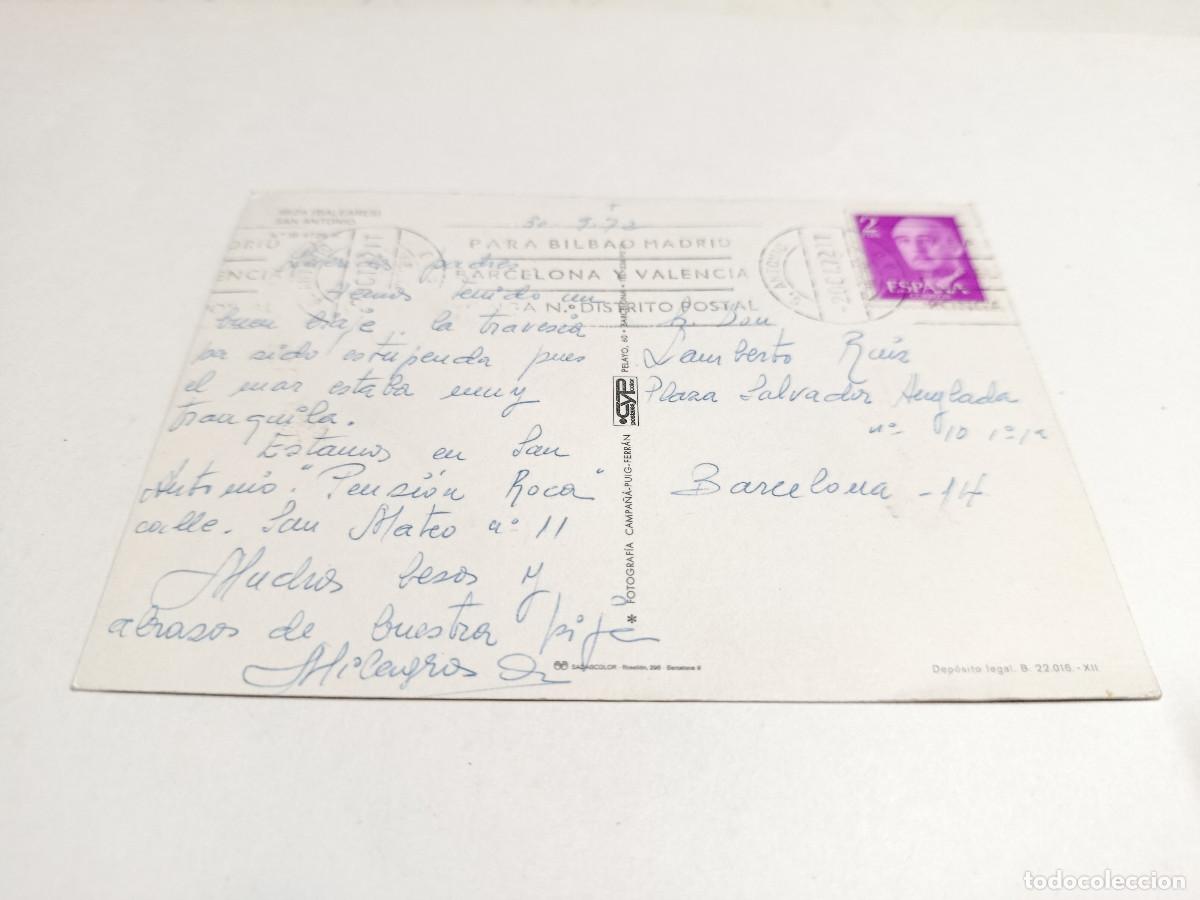 IBIZA (BALEARES)
SAN ANTONIO
30 9-72
PARA BILBAO MADRID
BARCELONA Y VALENCIA
N.º DISTRITO POSTAL
2 OCT 72 17
ANTONIO
2 OCT 72 17
2 PTAS
ESPAÑA
padres
Hemos tenido un
buen biaje. la travesia
ha sido estupenda pues
el mar estaba muy
tranquila.
Estamos en San
Antonio "Pensión Roca"
calle. San Mateo nº 11
Muchos besos y
abrasos de buestra hija
Milagros
Sr. Don
Lamberto Ruiz
Plaza Salvador Anglada
nº 10 1º 1ª
Barcelona - 14
* FOTOGRAFÍA CAMPAÑÁ-PUIG-FERRÁN
CYP
postales color
PELAYO, 60 • BARCELONA
SADAGCOLOR - Rosellón, 298 - Barcelona 9
Depósito legal. B. 22.016.-XII
todocoleccion